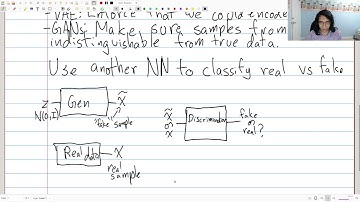 - VAE: Enforce that we could encode
- GANs: Make sure samples from
indistinguishable from true data.
Use another NN to classify real vs fake
Z
N(0,I)
Gen
x̃
"fake sample"
x̃
or
x
Discriminator
fake
or
real?
Real data
x
real
sample